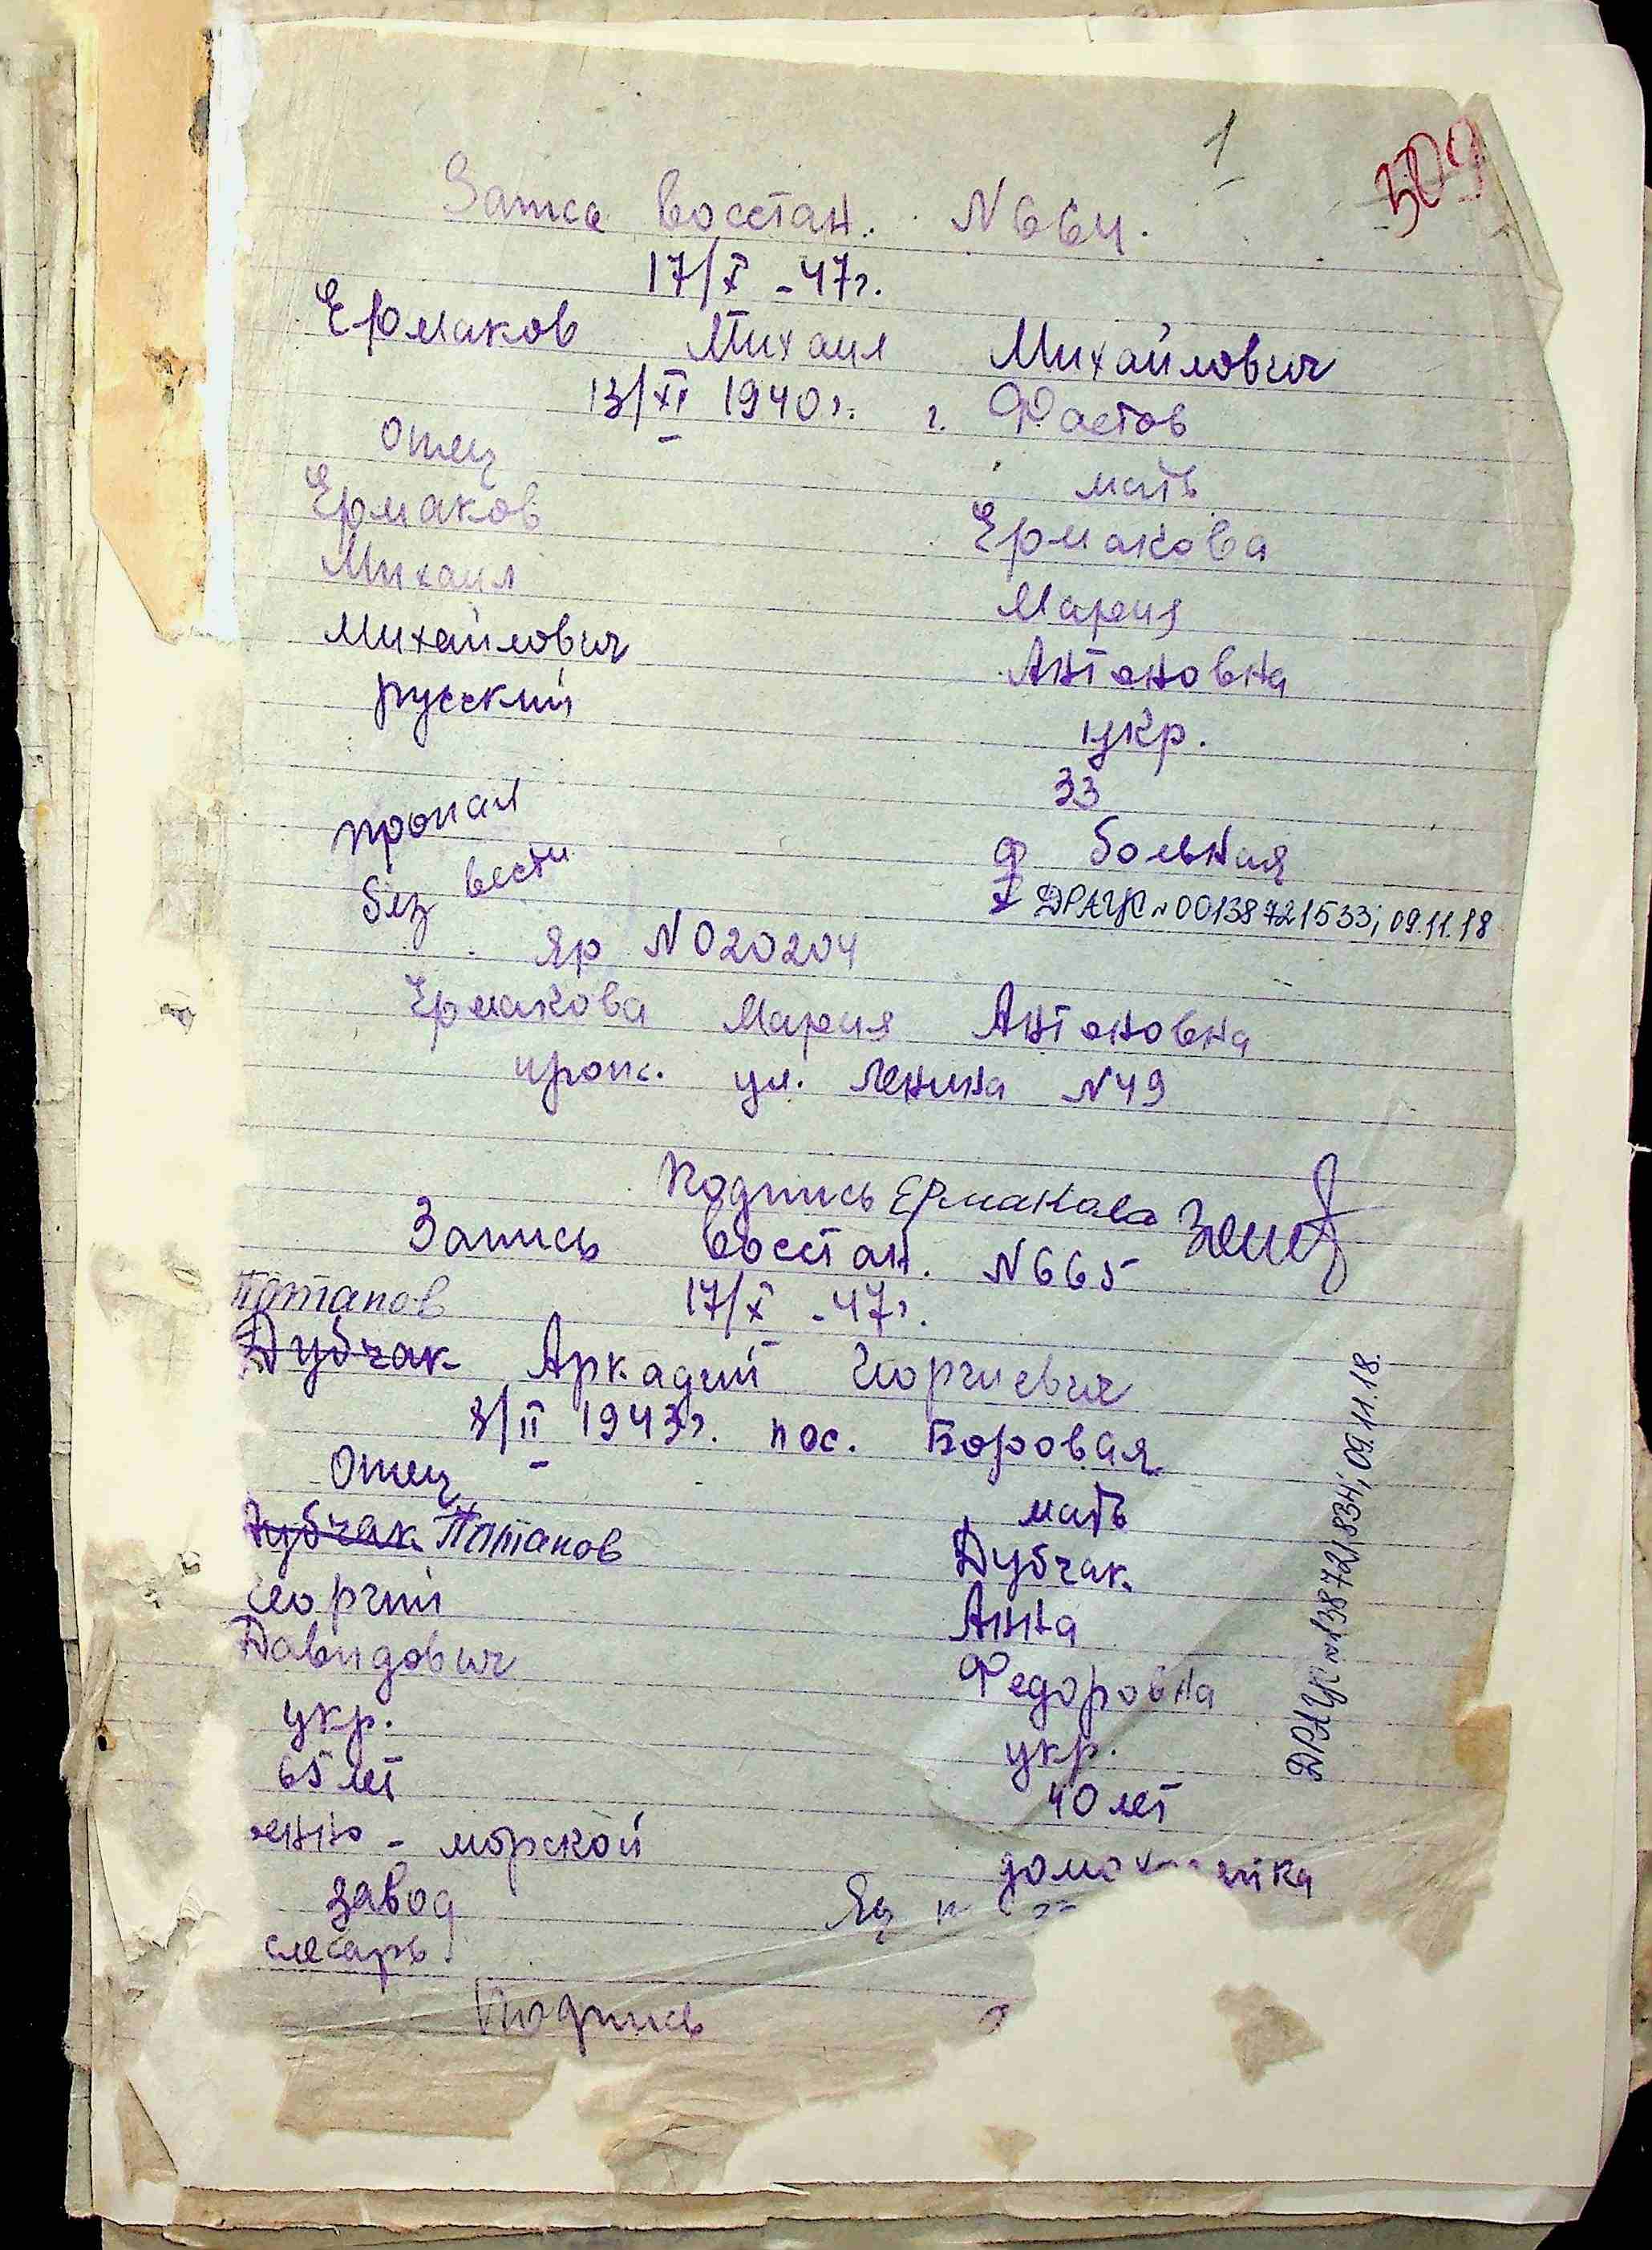 1
509
Запись восстан. N664.
17/X -47г.
Ермаков Михаил Михайлович
13/XI 1940г. г. Фастов
Отец мать
Ермаков Ермакова
Михаил Мария
Михайлович Антоновна
русский укр.
33
пропал больная
без вести ДРАЦС №00138721533; 09.11.18
яр N020204
Ермакова Мария Антоновна
прож. ул. Ленина N49
Подпись Ермакова
Запись восстан. N665
Потапов 17/X -47г.
Дубчак Аркадий Георгиевич
8/II 1943г. пос. Боровая
Отец мать
Дубчак Потапов Дубчак
Георгий Анна
Давидович Федоровна
укр. укр.
65 лет 40 лет
морской
завод
слесарь
Подпись
ДРАЦС 09.11.18.